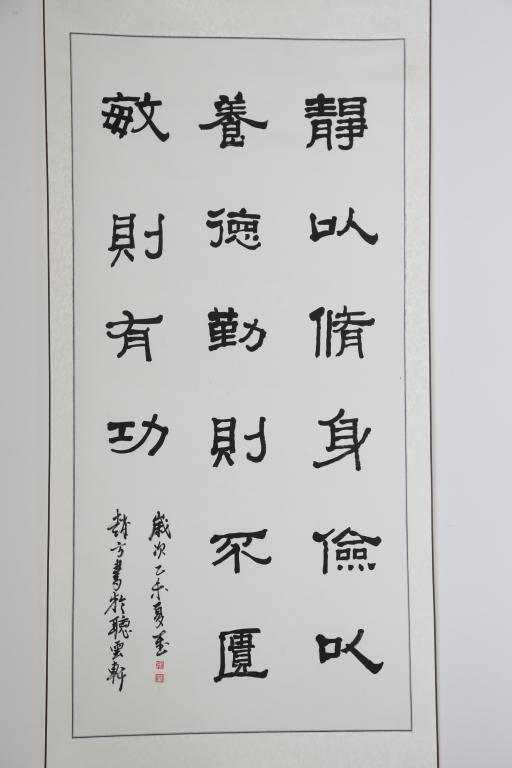 靜以脩身儉以
養德勤則不匱
敏則有功
歲次乙未夏
趙方書於聽雲軒